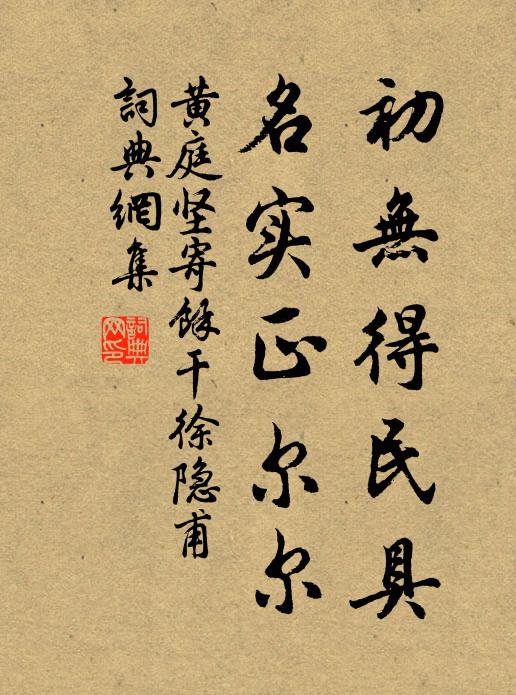 初無得民具
名实正尔尔
黄庭坚寄馀干徐隐甫
詞典網集
詞典网印